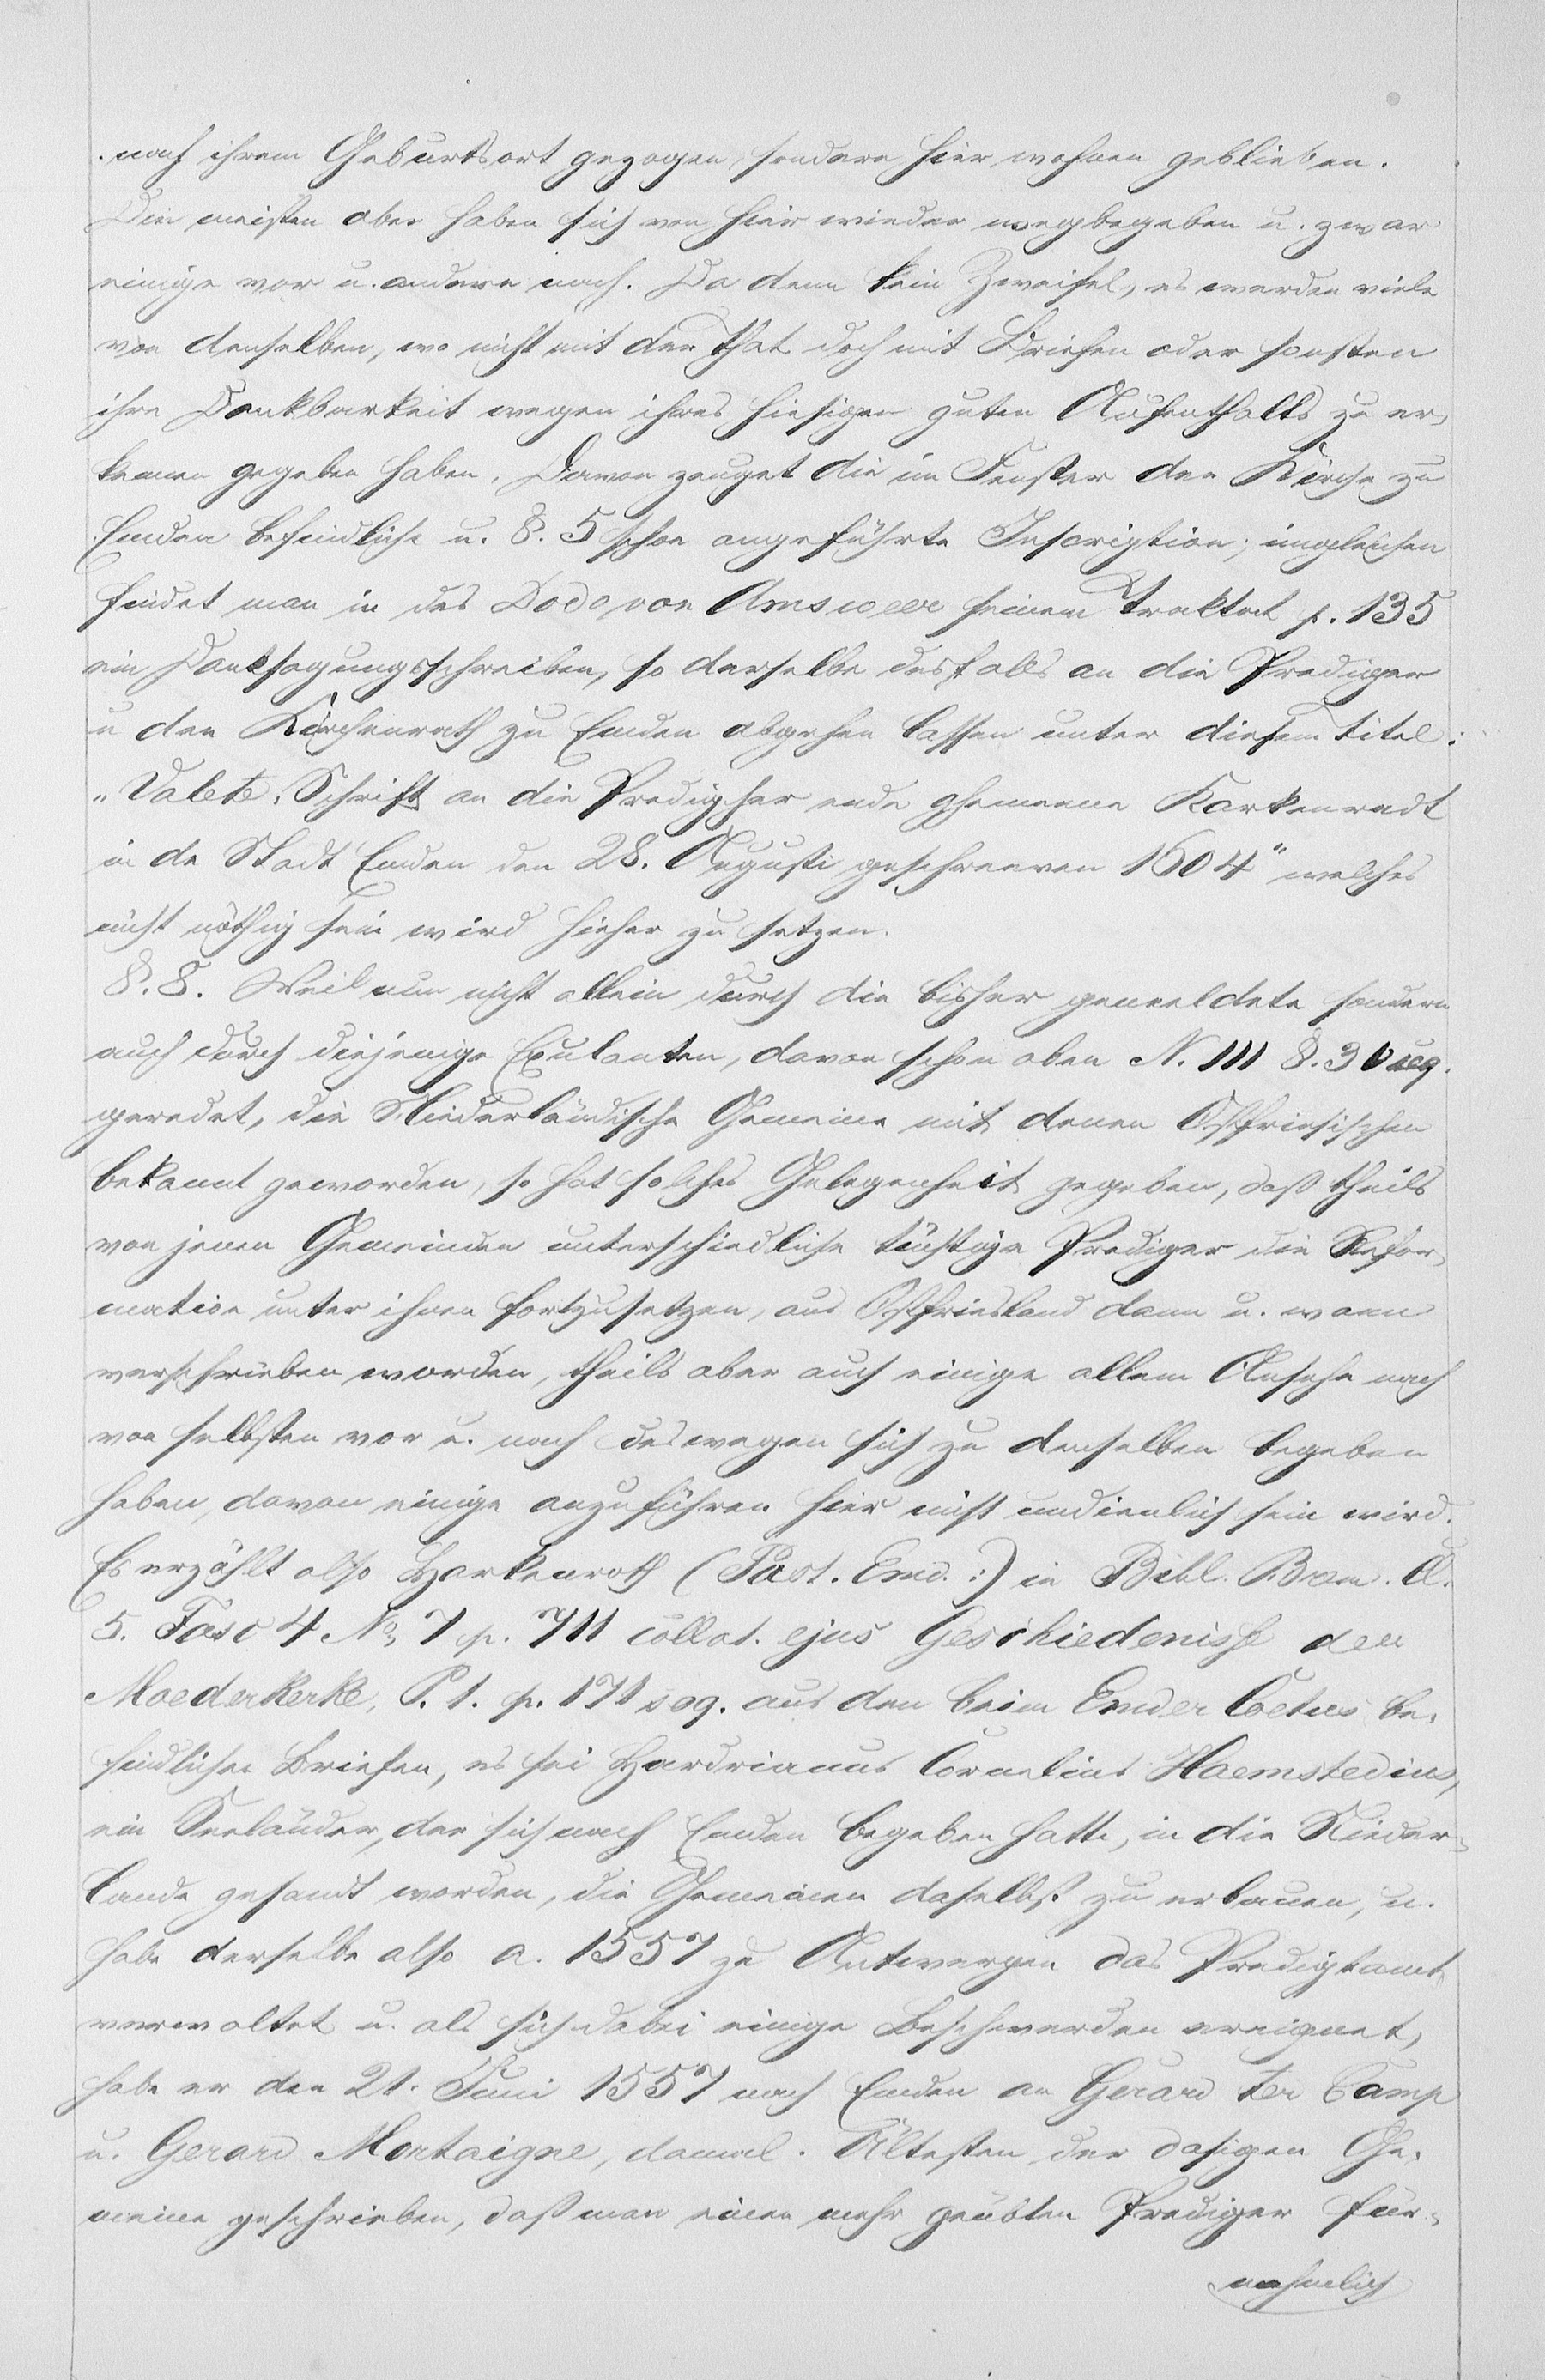 nach ihrem Geburtsort gezogen, sondern hier wohnen geblieben.
Die meisten aber haben sich von hier wieder wegbegeben u. zwar
einige vor u. andere nach. Da denn kein Zweifel, es werden viele
von denselben, wo nicht mit der That doch mit Briefen oder sonsten
ihre Dankbarkeit wegen ihres hiesigen guten Aufenthalts zu er-
kennen gegeben haben. Davon zeuget die im Fenster der Kirche zu
Emden befindliche u. §. 5 schon angeführte Inscription; imgleichen
findet man in des Dodo von Amsweer seinem Traktat p. 135
ein Danksagungsschreiben, so derselbe desfalls an die Prediger
u den Kirchenrath zu Emden abgehen lassen unter diesem Titel:
"Valete, Schrift an die Predigher ende ghemeene Karkenradt
in de Stadt Emden den 28. Augusti geschreeven 1604" welches
nicht nöthig sein wird hieher zu setzen.
§. 8. Weil nun nicht allein durch die bisher gemeldete sondern
auch durch diejenige Exulanten, davon schon oben N. III §. 30 seq.
geredet, die Niederländische Gemeine mit denen Ostfriesischen
bekannt geworden, so hat solches Gelegenheit gegeben, daß theils
von jenen Gemeinden unterschiedliche tüchtige Prediger die Refor-
mation unter ihnen fortzusetzen, aus Ostfriesland dann u. wann
verschrieben worden, theils aber auch einige allem Ansehn nach
von selbsten vor u. nach deswegen sich zu denselben begeben
haben, davon einige anzuführen hier nicht undienlich sein wird.
Es erzählt also Harkenroth (Past. Emd.:) in Bibl. Brem. Cl.
5. Fasc 4 No 7 p. 711 collat. ejus Geschiedenisse der
Moederkerke, P. 1. p. 171 seq. aus den beim Emder Coetus be-
findlichen Briefen, es sei Hardrianus Cornelius Haemstedius,
ein Seeländer, der sich nach Emden begeben hatte, in die Nieder-
lande gesandt worden, die Gemeinen daselbst zu erbauen, u.
habe derselbe also a. 1557 zu Antwerpen das Predigtamt
verwaltet u. als sich dabei einige Beschwerden ereignet,
habe er den 21. Juni 1557 nach Emden an Gerard ter Camp
u. Gerard Mortaigne, damal. Ältesten der dasigen Ge-
meine geschrieben, daß man einen mehr geübten Prediger für-
nehmlich